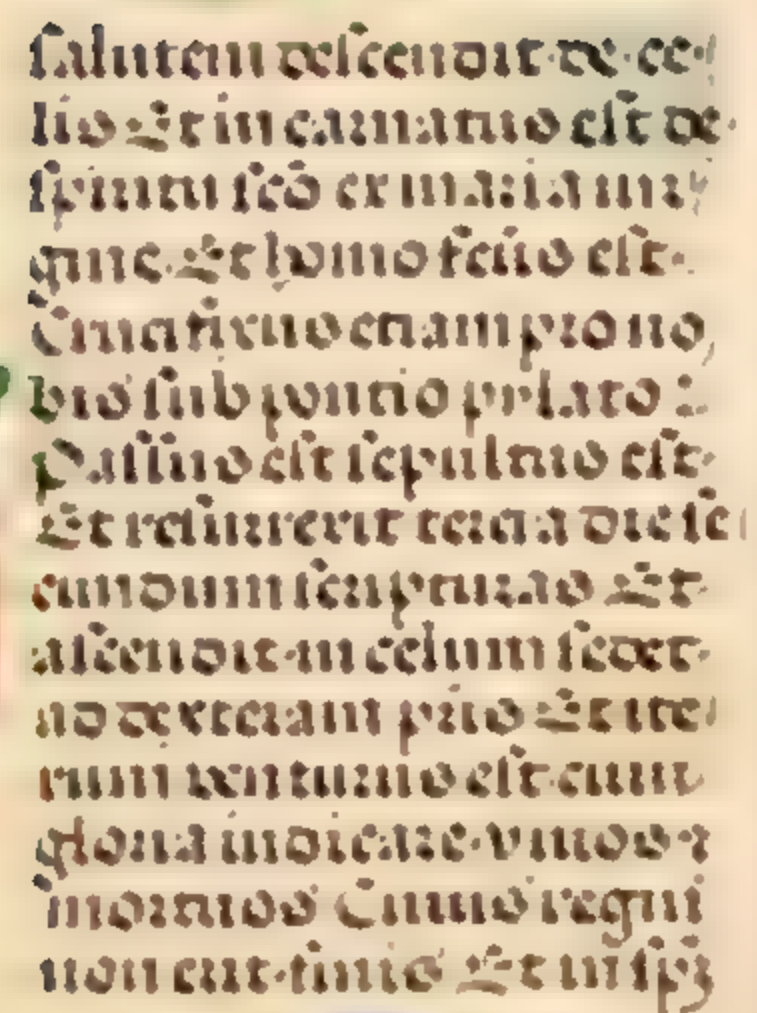 salutem descendit de ce
lis Et incarnatus est de
spiritu sco ex maria vir
gine. Et homo fctus est.
Crucifixus etiam pro no
bis sub pontio pylato
Passus est sepultus est
Et resurrexit tercia die se
cundum scripturas Et
ascendit in celum sedet
ad dexteram pris Et ite
rum venturus est cum
gloria iudicare vivos ⁊
mortuos Cuius regni
non erit finis Et in spm